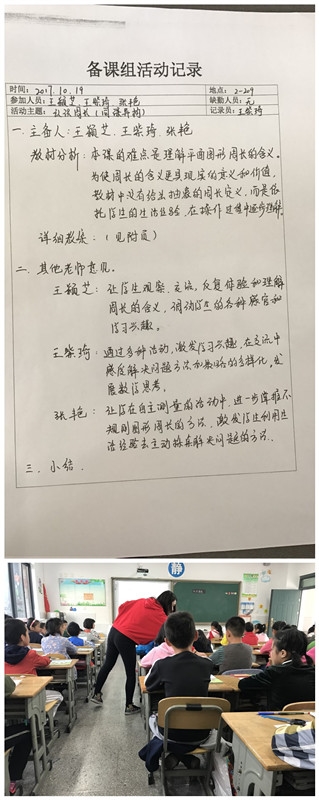 备课组活动记录
时间：2017.10.19 地点：2-209
参加人员：王颖芝、王紫琦、张艳 缺勤人员：无
活动主题：认识周长（同课异构） 记录员：王紫琦
一、主备人：王颖芝、王紫琦、张艳
教材分析：本课的难点是理解平面图形周长的含义。
为使周长的含义更具现实的意义和价值，
教材中没有给出抽象的周长定义，而是依
托学生的生活经验，在操作过程中逐步理解。
详细教案：（见附页）
二、其他老师意见。
王颖芝：让学生观察、交流，反复体验和理解
周长的含义，调动学生的各种感官和
学习兴趣。
王紫琦：通过多种活动，激发学习兴趣，在交流中
感受解决问题方法和策略的多样化，发
展数学思考。
张艳：让学在自主测量的活动中，进一步掌握不
规则图形周长的方法，激发学生利用生
活经验去主动探索解决问题的方法。
三、小结．
静